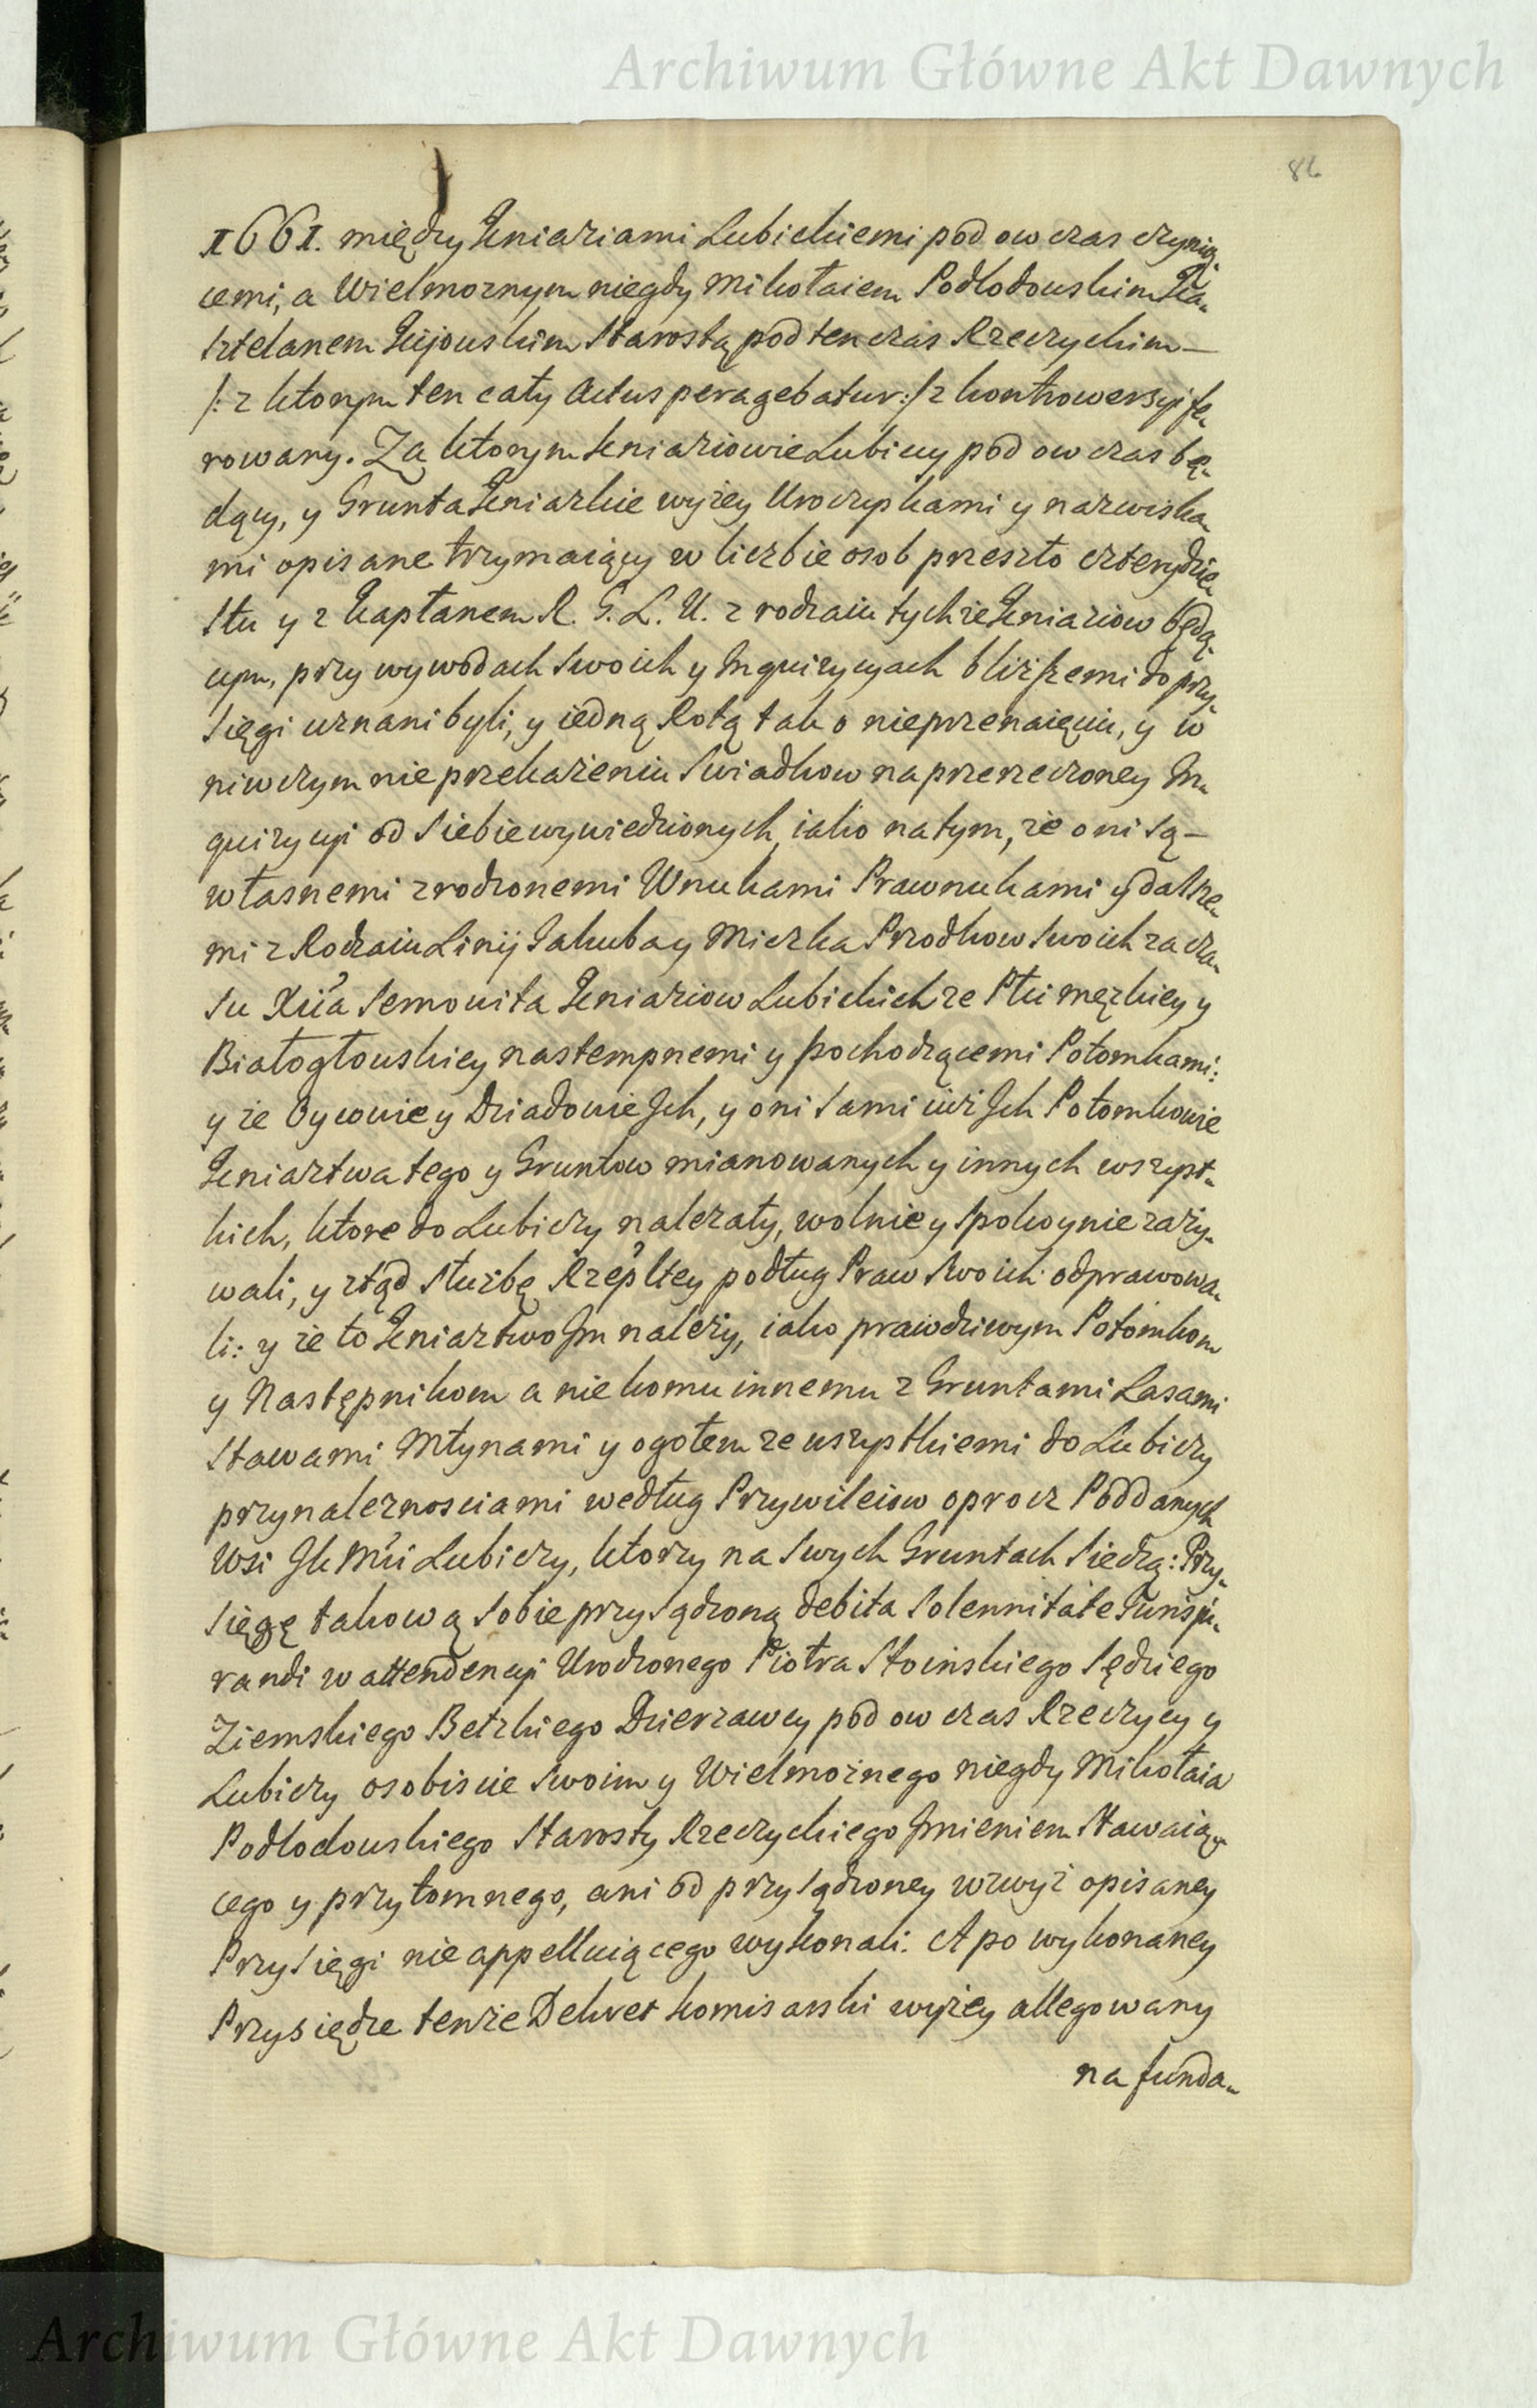 Archiwum Główne Akt Dawnych
86
1661. między Kniaziami Lubickiemi pod ow czas czynią-
cemi, a Wielmoznym niegdy Mikołaiem Podlodowskim Ka-
sztelanem Kijowskim Starostą pod ten czas Rzeczyckim —
/: z ktorym ten cały Actus peragebatur :/ z kontrowersyi fe-
rowany. Za ktorym Kniaziowie Lubiccy pod ow czas bę-
dący, y Grunta Kniazkie wyżey Uroczyskami y nazwiska-
mi opisane trzymaiący w liczbie osob przeszło czterydzie-
stu y z Kapłanem R. G. L. U. z rodzaiu tychże Kniaziow będą-
cym, przy wywodach swoich y Inquizycyach bliższemi do przy-
sięgi uznani byli, y iedną Rotą tak o nieprzenaięciu, y w
niwczym nieprzekażeniu Swiadkow na przerzeczoney In-
quizycyi od siebie wywiedzionych, iako na tym, że oni są —
własnemi zrodzonemi Wnukami Prawnukami y dalsze-
mi z Rodzaiu Linij Jakuba y Mieczka Przodkow swoich za cza-
su Xcia Semowita Kniaziow Lubickich ze Płci męzkiey y
Białogłowskiey nastempnemi y pochodzącemi Potomkami:
y że Oycowie y Dziadowie Ich, y oni sami iuż Ich Potomkowie
Kniaztwa tego y Gruntow mianowanych y innych wszyst-
kich, ktore do Lubiczy nalezały, wolnie y spokoynie zaży-
wali, y ztąd służbę Rzepltey podług Praw swoich odprawowa-
li: y że to Kniaztwo Im należy, iako prawdziwym Potomkom
y Następnikom a nie komu innemu z Gruntami Lasami
Stawami Młynami y ogołem ze wszystkiemi do Lubiczy
przynaleznosciami według Przywileiow oprocz Poddanych
Wsi JKMci Lubiczy, ktorzy na swych Gruntach siedzą: Przy-
sięgę takową sobie przysądzoną debita Solennitate Jurisju-
randi w attendencyi Urodzonego Piotra Stoinskiego Sędziego
Ziemskiego Bełzkiego Dzierzawcy pod ow czas Rzeczycy y
Lubiczy osobiscie swoim y Wielmożnego niegdy Mikołaia
Podlodowskiego Starosty Rzeczyckiego Imieniem stawaią-
cego y przytomnego, ani od przysądzoney wzwyż opisaney
Przysięgi nie appelluiącego wykonali. A po wykonaney
Przysiędze tenże Dekret Komisarski wyżey allegowany
na funda-
Archiwum Główne Akt Dawnych